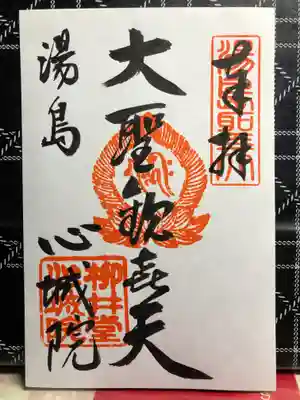 奉拝
湯島聖天
大聖歓喜天
湯島
心城院
柳井堂
心城院